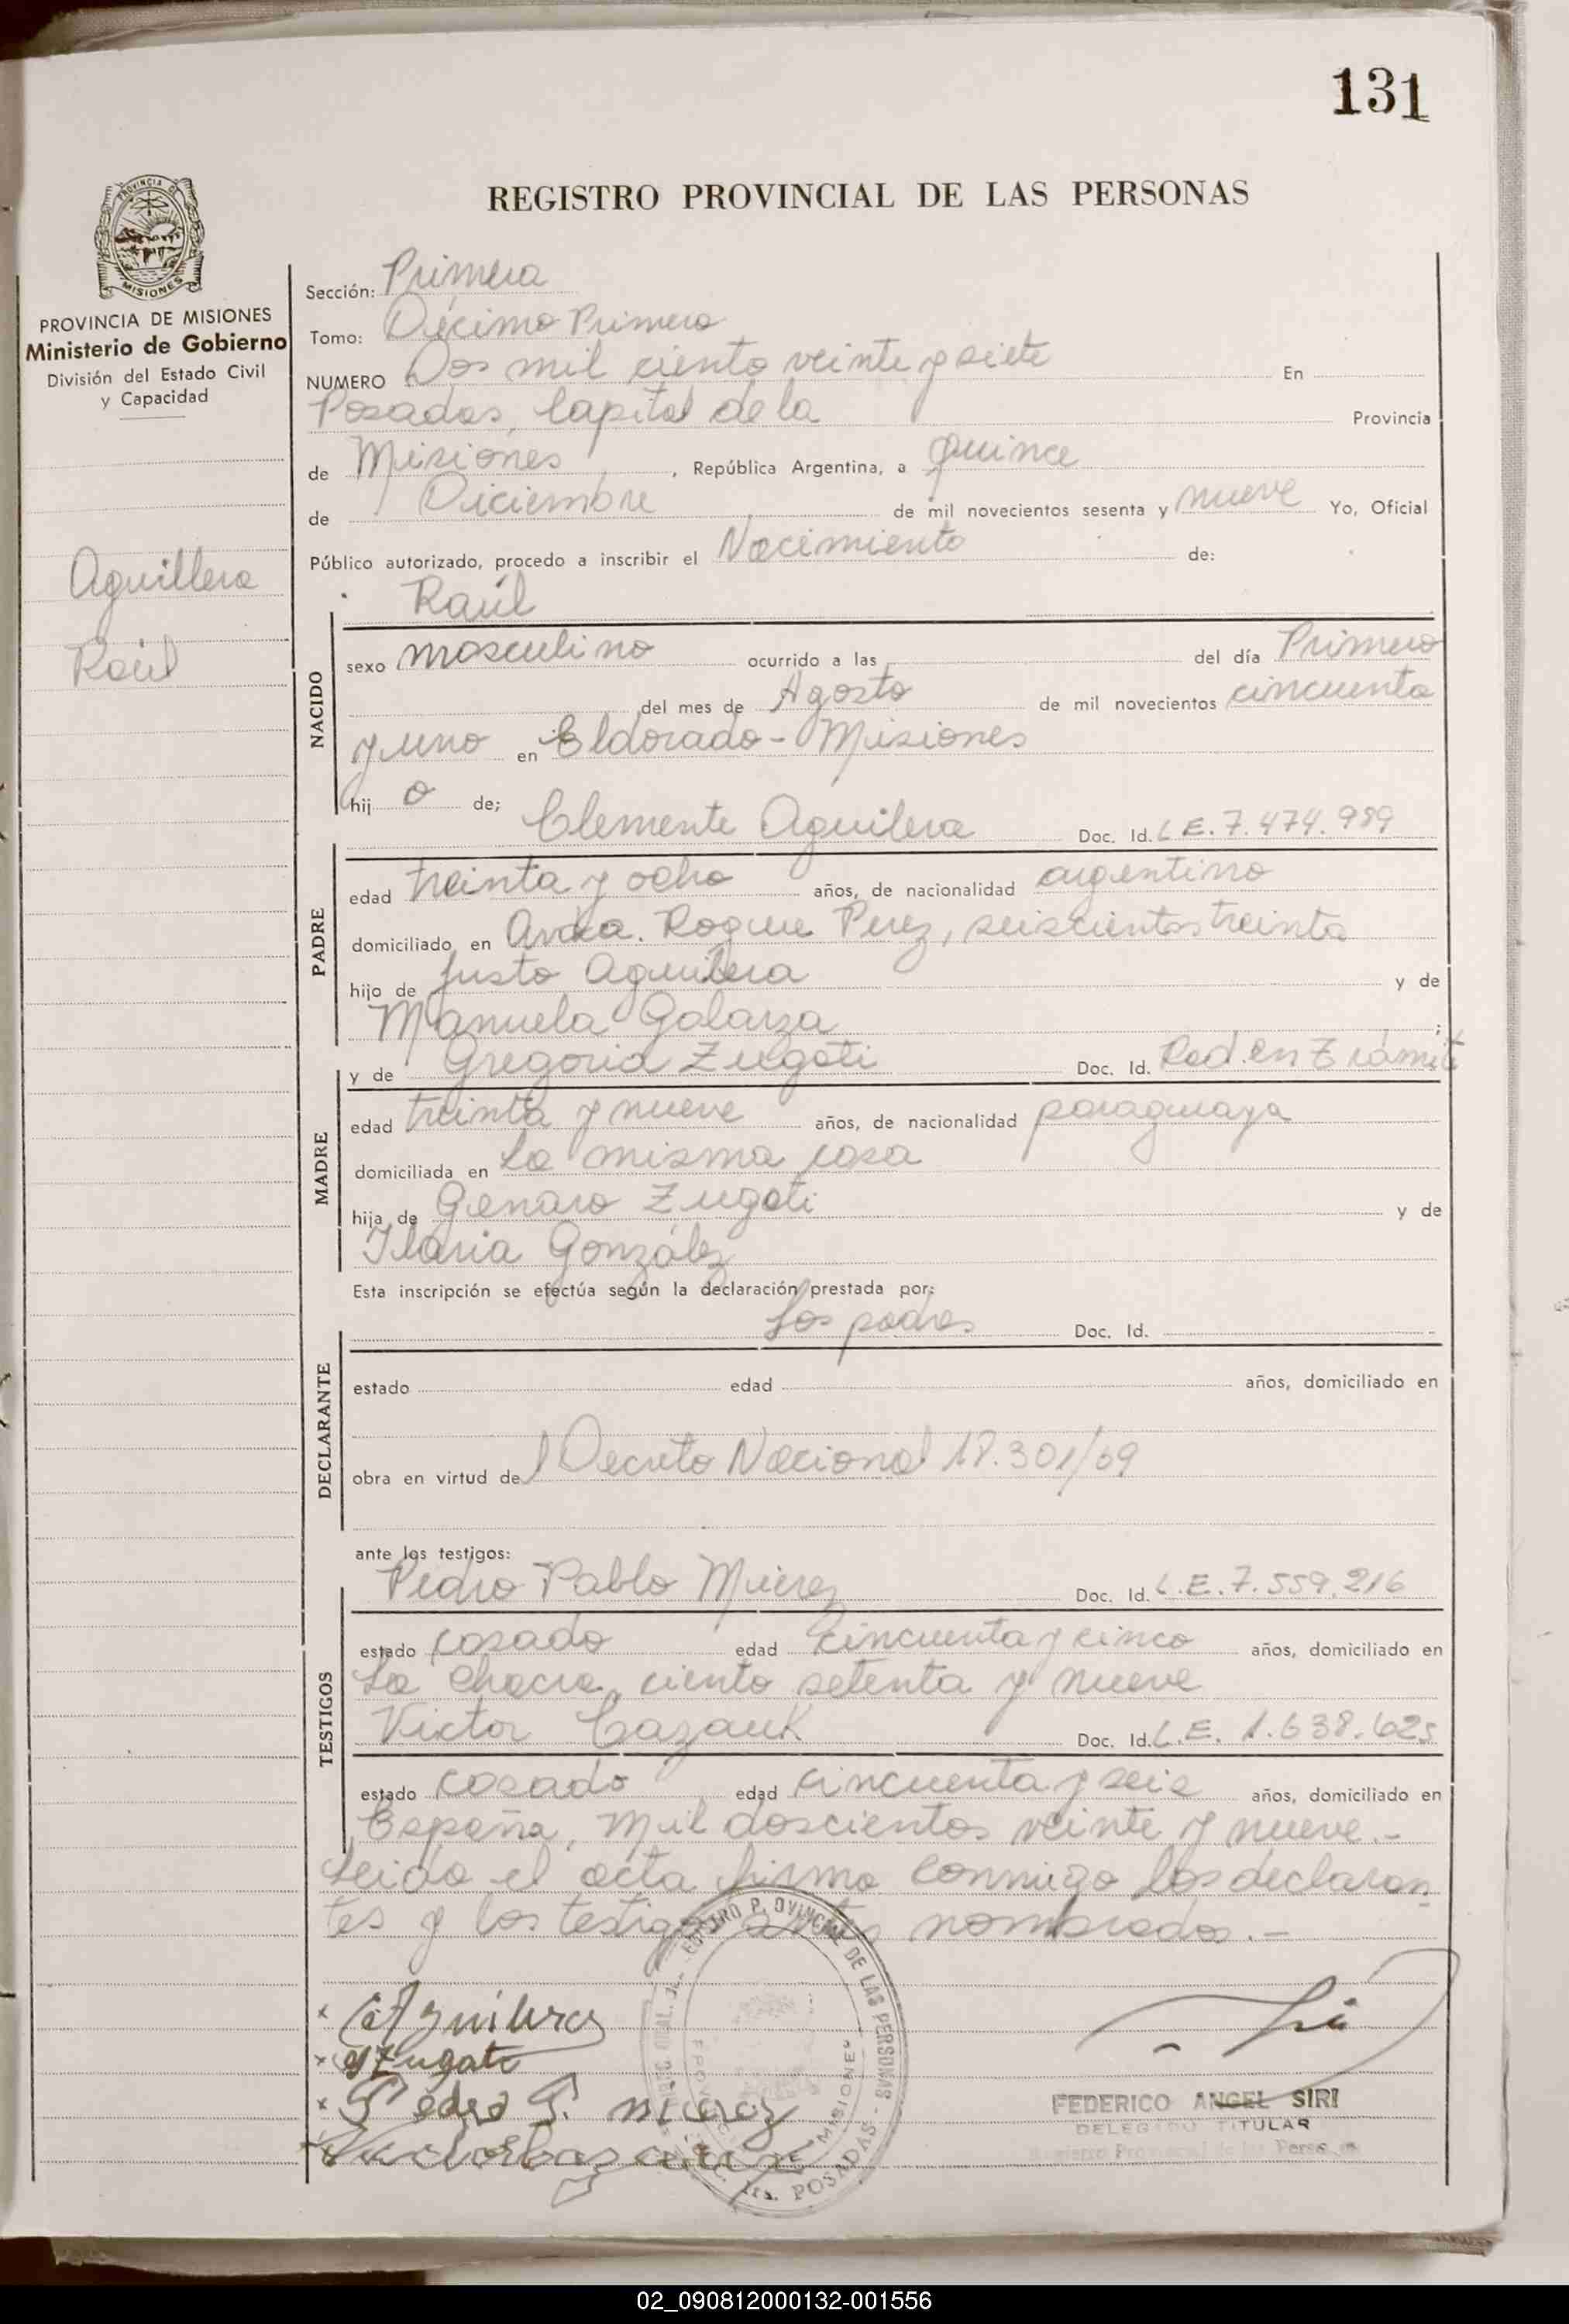 131
REGISTRO PROVINCIAL DE LAS PERSONAS
PROVINCIA DE MISIONES
PROVINCIA DE MISIONES
Ministerio de Gobierno
División del Estado Civil
y Capacidad
Aguillera
Raúl
Sección: Primera
Tomo: Décimo Primero
NUMERO Dos mil ciento veinte y siete En
Posadas, Capital de la Provincia
de Misiones, República Argentina, a quince
de Diciembre de mil novecientos sesenta y nueve Yo, Oficial
Público autorizado, procedo a inscribir el Nacimiento de:
Raúl
NACIDO
sexo masculino ocurrido a las del día Primero
del mes de Agosto de mil novecientos cincuenta
y uno en Eldorado - Misiones
hij o de;
Clemente Aguilera Doc. Id. L.E. 7.474.989
PADRE
edad treinta y ocho años, de nacionalidad argentino
domiciliado en Avda. Roque Perez, seiscientos treinta
hijo de Justo Aguilera y de
Manuela Galarza;
y de Gregoria Zugati Doc. Id. Rad. en Trámite
MADRE
edad treinta y nueve años, de nacionalidad paraguaya
domiciliada en La misma casa
hija de Genaro Zugati y de
Ilaria González
Esta inscripción se efectúa según la declaración prestada por:
Los padres Doc. Id.
DECLARANTE
estado edad años, domiciliado en
obra en virtud del Decreto Nacional 18.301/69
ante los testigos:
Pedro Pablo Mierez Doc. Id. L.E. 7.559.216
TESTIGOS
estado casado edad cincuenta y cinco años, domiciliado en
La Chacra, ciento setenta y nueve
Victor Cazauk Doc. Id. L.E. 1.638.625
estado casado edad cincuenta y seis años, domiciliado en
España, mil doscientos veinte y nueve.-
Leido el acta firma conmigo los declaran
tes y los testigos antes nombrados.-
x C Aguilera
x G Zugati
x Pedro P. Mierez
x Victor Cazauk
REGISTRO PROVINCIAL DE LAS PERSONAS - POSADAS
MISIONES
FEDERICO ANGEL SIRI
DELEGADO TITULAR
Registro Provincial de las Personas
02_090812000132-001556